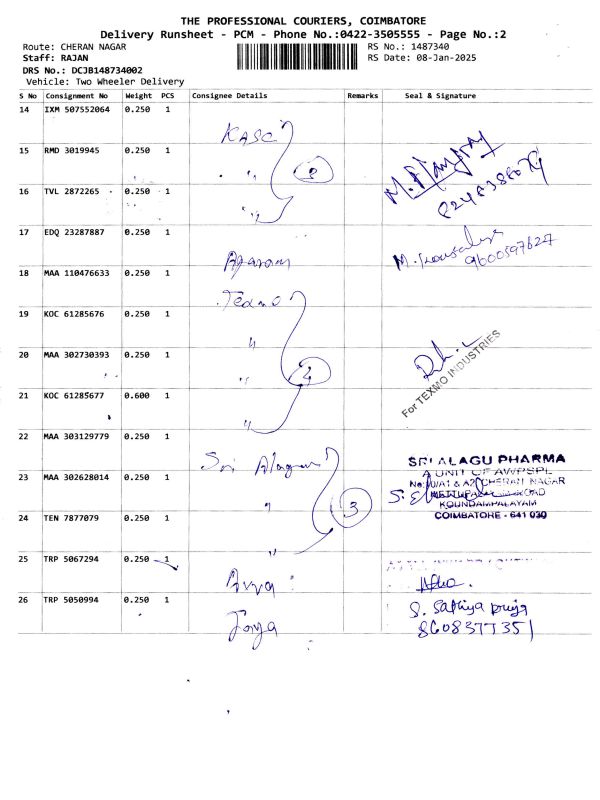 THE PROFESSIONAL COURIERS, COIMBATORE
Delivery Runsheet - PCM - Phone No.:0422-3505555 - Page No.:2
Route: CHERAN NAGAR
RS No.: 1487340
Staff: RAJAN
RS Date: 08-Jan-2025
DRS No.: DCJB148734002
Vehicle: Two Wheeler Delivery
S No Consignment No Weight PCS Consignee Details Remarks Seal & Signature
14 IXM 507552064 0.250 1 KASC
15 RMD 3019945 0.250 1 "
16 TVL 2872265 0.250 1 "
17 EDQ 23287887 0.250 1 M. 9600597627
18 MAA 110476633 0.250 1
19 KOC 61285676 0.250 1 "
20 MAA 302730393 0.250 1 "
For TEXMO INDUSTRIES
21 KOC 61285677 0.600 1 "
22 MAA 303129779 0.250 1 Sri Alagu
SRI ALAGU PHARMA
A UNIT OF AWPSPL
23 MAA 302628014 0.250 1 " 3
CHERAN NAGAR
KOUNDAMPALAYAM
COIMBATORE - 641 030
24 TEN 7877079 0.250 1 "
25 TRP 5067294 0.250 1
26 TRP 5050994 0.250 1
S. Sathiya priya
8608377351